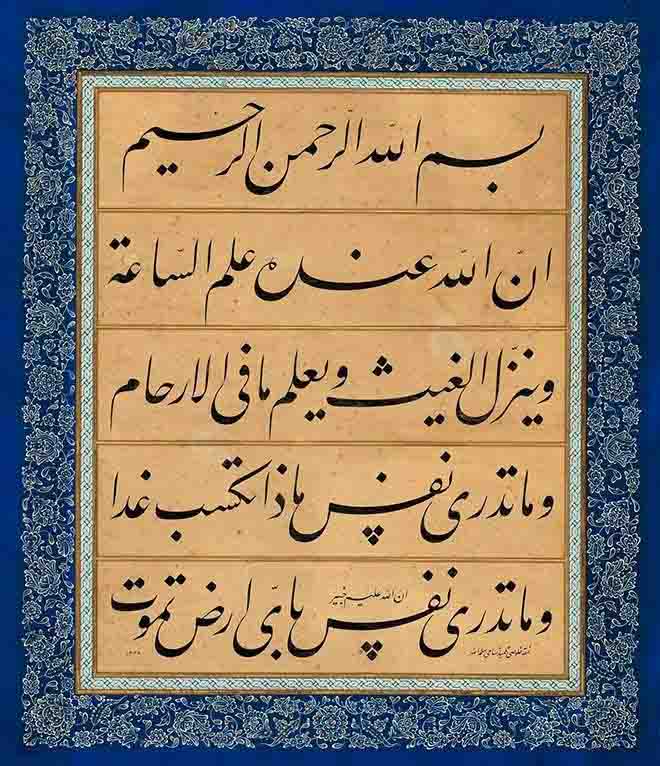 بسم الله الرّحمن الرحیم
انّ الله عنده علم السّاعة
وینزّل الغیث ویعلم مافی الارحام
وماتدری نفس ماذا تکسب غدا
وماتدری نفس بایّ ارض تموت
ان الله علیم خبیر